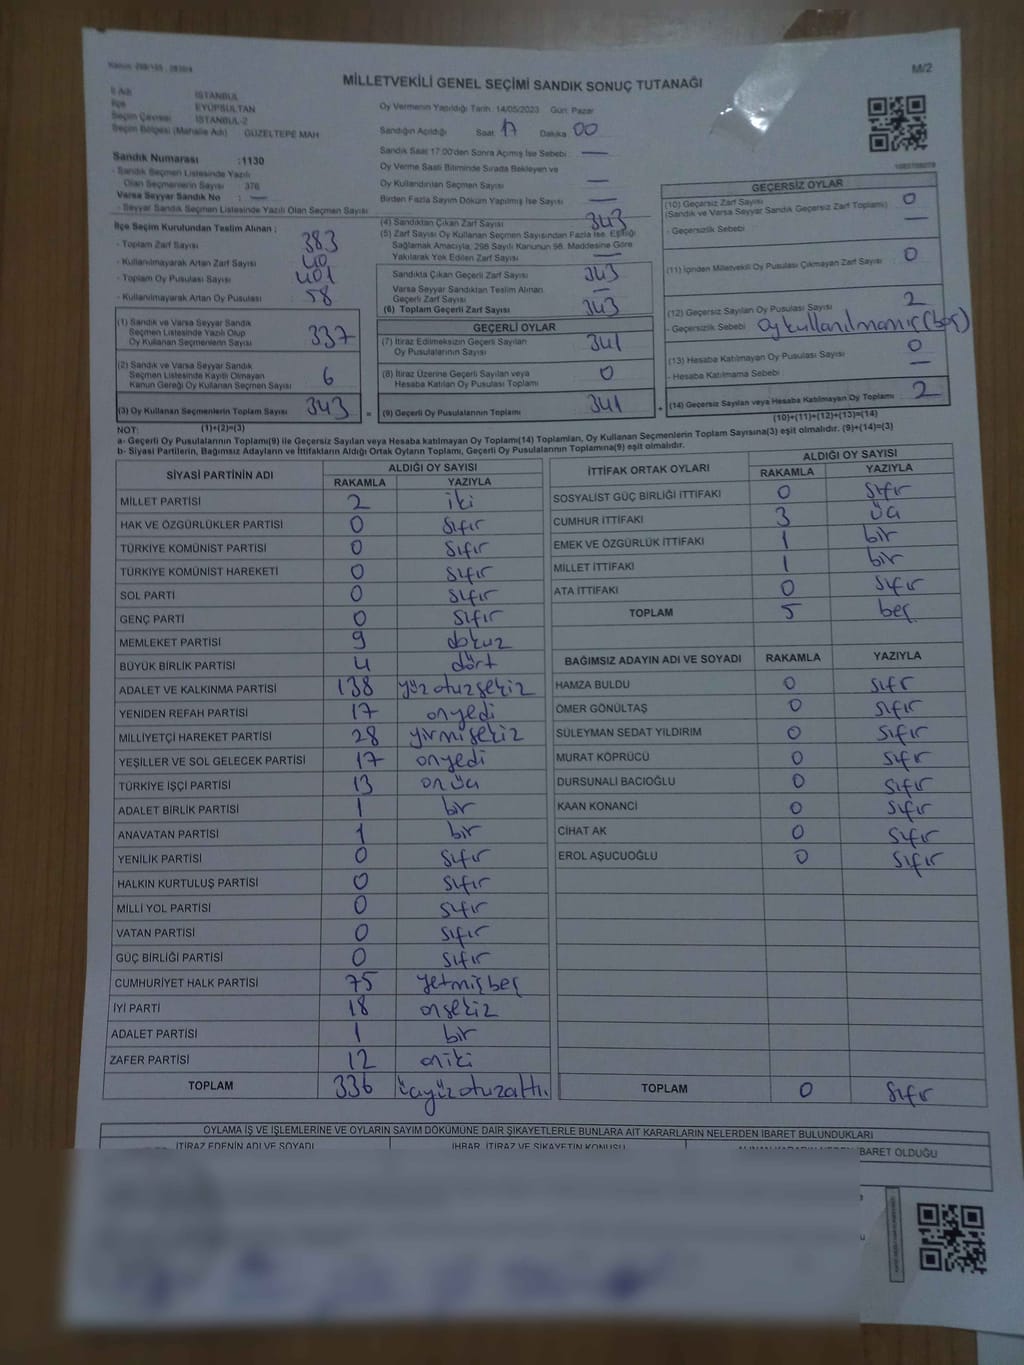 MİLLETVEKİLİ GENEL SEÇİMİ SANDIK SONUÇ TUTANAĞI
M/2
İl Adı İSTANBUL
İlçe EYÜPSULTAN
Seçim Çevresi İSTANBUL-2
Seçim Bölgesi (Mahalle Adı) GÜZELTEPE MAH
Sandık Numarası :1130
- Sandık Seçmen Listesinde Yazılı
Olan Seçmenlerin Sayısı 376
Varsa Seyyar Sandık No : —
- Seyyar Sandık Seçmen Listesinde Yazılı Olan Seçmen Sayısı
Oy Vermenin Yapıldığı Tarih :14/05/2023 Gün: Pazar
Sandığın Açıldığı Saat 17 Dakika 00
Sandık Saat 17:00'den Sonra Açılmış İse Sebebi : —
Oy Verme Saati Bitiminde Sırada Bekleyen ve
Oy Kullandırılan Seçmen Sayısı —
Birden Fazla Sayım Döküm Yapılmış İse Sayısı —
İlçe Seçim Kurulundan Teslim Alınan ;
- Toplam Zarf Sayısı 383
- Kullanılmayarak Artan Zarf Sayısı 40
- Toplam Oy Pusulası Sayısı 401
- Kullanılmayarak Artan Oy Pusulası 58
(1) Sandık ve Varsa Seyyar Sandık
Seçmen Listesinde Yazılı Olup
Oy Kullanan Seçmenlerin Sayısı 337
(2) Sandık ve Varsa Seyyar Sandık
Seçmen Listesinde Kayıtlı Olmayan
Kanun Gereği Oy Kullanan Seçmen Sayısı 6
(3) Oy Kullanan Seçmenlerin Toplam Sayısı 343 =
(1)+(2)=(3)
(4) Sandıktan Çıkan Zarf Sayısı 343
(5) Zarf Sayısı Oy Kullanan Seçmen Sayısından Fazla İse, Eşitliği
Sağlamak Amacıyla, 298 Sayılı Kanunun 98. Maddesine Göre
Yakılarak Yok Edilen Zarf Sayısı —
Sandıkta Çıkan Geçerli Zarf Sayısı 343
Varsa Seyyar Sandıktan Teslim Alınan
Geçerli Zarf Sayısı —
(6) Toplam Geçerli Zarf Sayısı 343
GEÇERLİ OYLAR
(7) İtiraz Edilmeksizin Geçerli Sayılan
Oy Pusulalarının Sayısı 341
(8) İtiraz Üzerine Geçerli Sayılan veya
Hesaba Katılan Oy Pusulası Toplamı 0
(9) Geçerli Oy Pusulalarının Toplamı 341 +
GEÇERSİZ OYLAR
(10) Geçersiz Zarf Sayısı 0
(Sandık ve Varsa Seyyar Sandık Geçersiz Zarf Toplamı)
- Geçersizlik Sebebi : —
(11) İçinden Milletvekili Oy Pusulası Çıkmayan Zarf Sayısı 0
(12) Geçersiz Sayılan Oy Pusulası Sayısı 2
- Geçersizlik Sebebi Oy kullanılmamış(boş)
(13) Hesaba Katılmayan Oy Pusulası Sayısı 0
- Hesaba Katılmama Sebebi —
(14) Geçersiz Sayılan veya Hesaba Katılmayan Oy Toplamı 2
(10)+(11)+(12)+(13)=(14)
NOT:
a- Geçerli Oy Pusulalarının Toplamı(9) ile Geçersiz Sayılan veya Hesaba katılmayan Oy Toplamı(14) Toplamları, Oy Kullanan Seçmenlerin Toplam Sayısına(3) eşit olmalıdır. (9)+(14)=(3)
b- Siyasi Partilerin, Bağımsız Adayların ve İttifakların Aldığı Ortak Oyların Toplamı, Geçerli Oy Pusulalarının Toplamına(9) eşit olmalıdır.
SİYASİ PARTİNİN ADI ALDIĞI OY SAYISI
RAKAMLA YAZIYLA
MİLLET PARTİSİ 2 iki
HAK VE ÖZGÜRLÜKLER PARTİSİ 0 sıfır
TÜRKİYE KOMÜNİST PARTİSİ 0 sıfır
TÜRKİYE KOMÜNİST HAREKETİ 0 sıfır
SOL PARTİ 0 sıfır
GENÇ PARTİ 0 sıfır
MEMLEKET PARTİSİ 9 dokuz
BÜYÜK BİRLİK PARTİSİ 4 dört
ADALET VE KALKINMA PARTİSİ 138 yüzotuzsekiz
YENİDEN REFAH PARTİSİ 17 onyedi
MİLLİYETÇİ HAREKET PARTİSİ 28 yirmisekiz
YEŞİLLER VE SOL GELECEK PARTİSİ 17 onyedi
TÜRKİYE İŞÇİ PARTİSİ 13 onüç
ADALET BİRLİK PARTİSİ 1 bir
ANAVATAN PARTİSİ 1 bir
YENİLİK PARTİSİ 0 sıfır
HALKIN KURTULUŞ PARTİSİ 0 sıfır
MİLLİ YOL PARTİSİ 0 sıfır
VATAN PARTİSİ 0 sıfır
GÜÇ BİRLİĞİ PARTİSİ 0 sıfır
CUMHURİYET HALK PARTİSİ 75 yetmişbeş
İYİ PARTİ 18 onsekiz
ADALET PARTİSİ 1 bir
ZAFER PARTİSİ 12 oniki
TOPLAM 336 üçyüzotuzaltı
İTTİFAK ORTAK OYLARI ALDIĞI OY SAYISI
RAKAMLA YAZIYLA
SOSYALİST GÜÇ BİRLİĞİ İTTİFAKI 0 sıfır
CUMHUR İTTİFAKI 3 üç
EMEK VE ÖZGÜRLÜK İTTİFAKI 1 bir
MİLLET İTTİFAKI 1 bir
ATA İTTİFAKI 0 sıfır
TOPLAM 5 beş
BAĞIMSIZ ADAYIN ADI VE SOYADI RAKAMLA YAZIYLA
HAMZA BULDU 0 sıfır
ÖMER GÖNÜLTAŞ 0 sıfır
SÜLEYMAN SEDAT YILDIRIM 0 sıfır
MURAT KÖPRÜCÜ 0 sıfır
DURSUNALİ BACIOĞLU 0 sıfır
KAAN KONANCİ 0 sıfır
CİHAT AK 0 sıfır
EROL AŞUCUOĞLU 0 sıfır
TOPLAM 0 sıfır
OYLAMA İŞ VE İŞLEMLERİNE VE OYLARIN SAYIM DÖKÜMÜNE DAİR ŞİKAYETLERLE BUNLARA AİT KARARLARIN NELERDEN İBARET BULUNDUKLARI
İTİRAZ EDENİN ADI VE SOYADI İHBAR, İTİRAZ VE ŞİKAYETİN KONUSU İBARET OLDUĞU